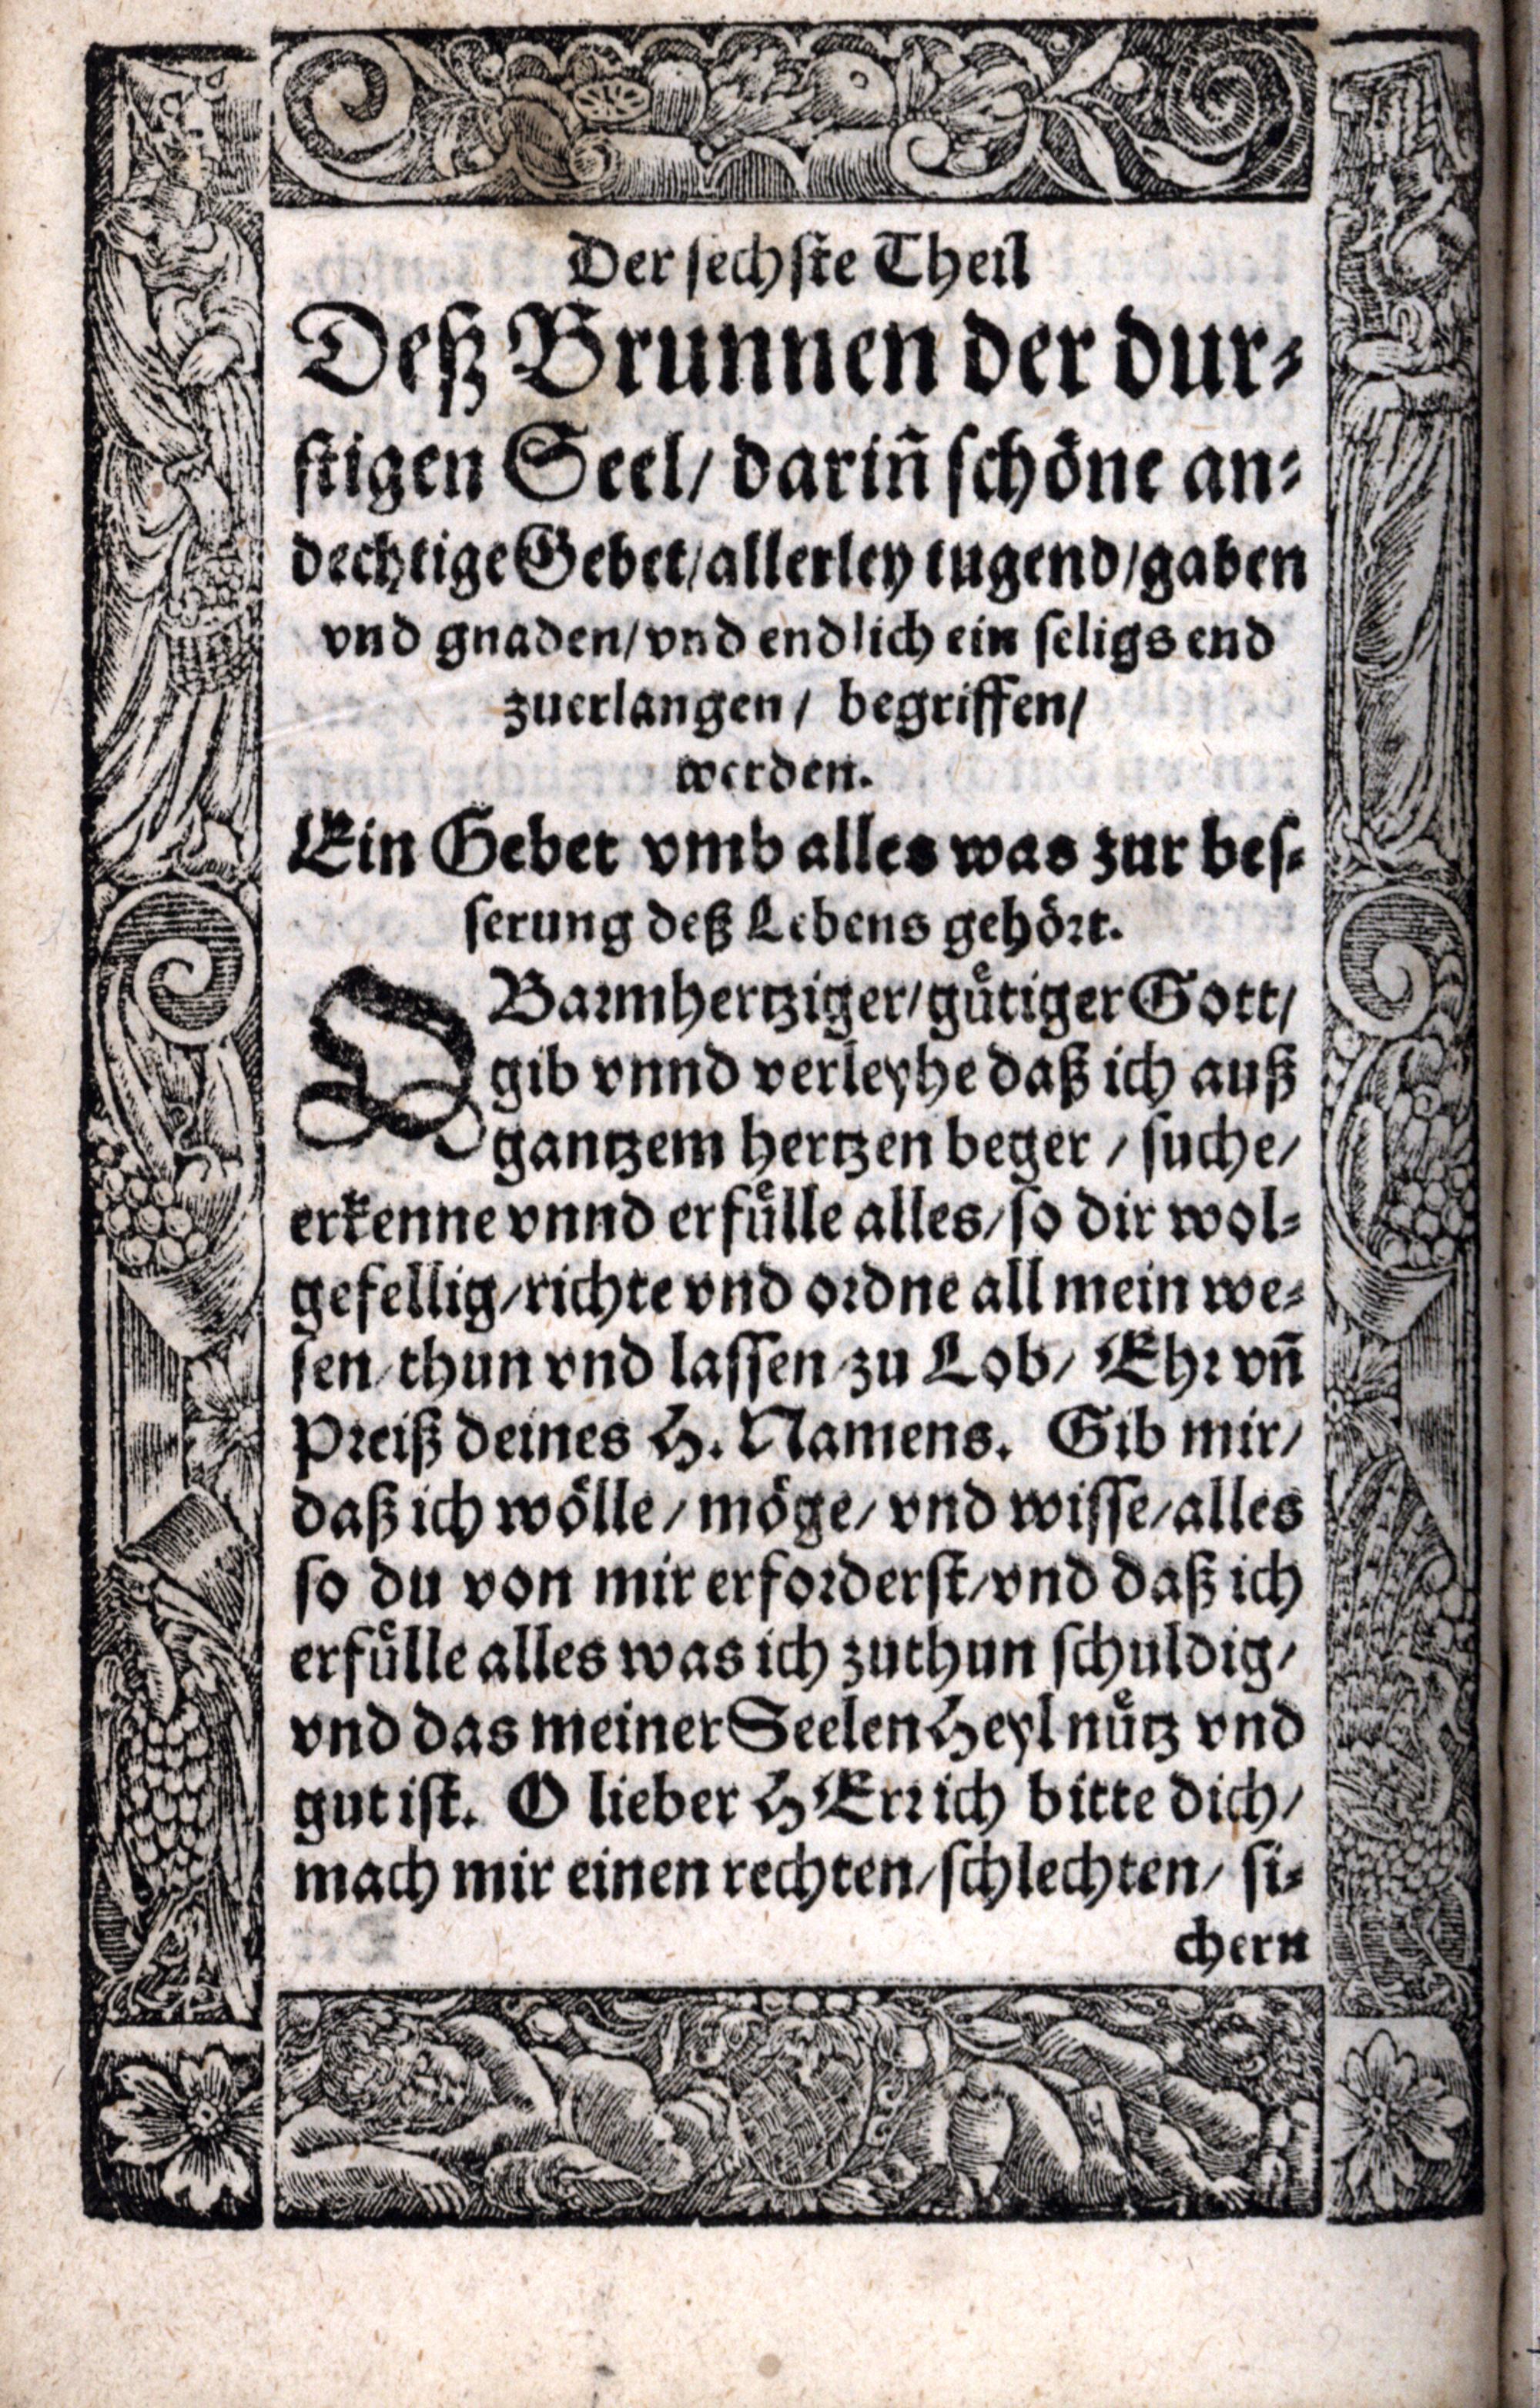 Der sechste Theil
Deß Brunnen der dur⸗
stigen Seel/ dariñ schöne an⸗
dechtige Gebet/allerley tugend/gaben
vnd gnaden/vnd endlich ein seligs end
zuerlangen/ begriffen/
werden.
Ein Gebet vmb alles was zur bes⸗
serung deß Lebens gehört.
O Barmhertziger/guͤtiger Gott/
gib vnnd verleyhe daß ich auß
gantzem hertzen beger / suche/
erkenne vnnd erfuͤlle alles/so dir wol⸗
gefellig/richte vnd ordne all mein we⸗
sen/thun vnd lassen/zu Lob/ Ehr vñ
Preiß deines H. Namens. Gib mir/
daß ich wölle/möge/vnd wisse/alles
so du von mir erforderst/vnd daß ich
erfuͤlle alles was ich zuthun schuldig/
vnd das meiner Seelen Heyl nuͤtz vnd
gut ist. O lieber HErr ich bitte dich/
mach mir einen rechten/schlechten/ si⸗
chern